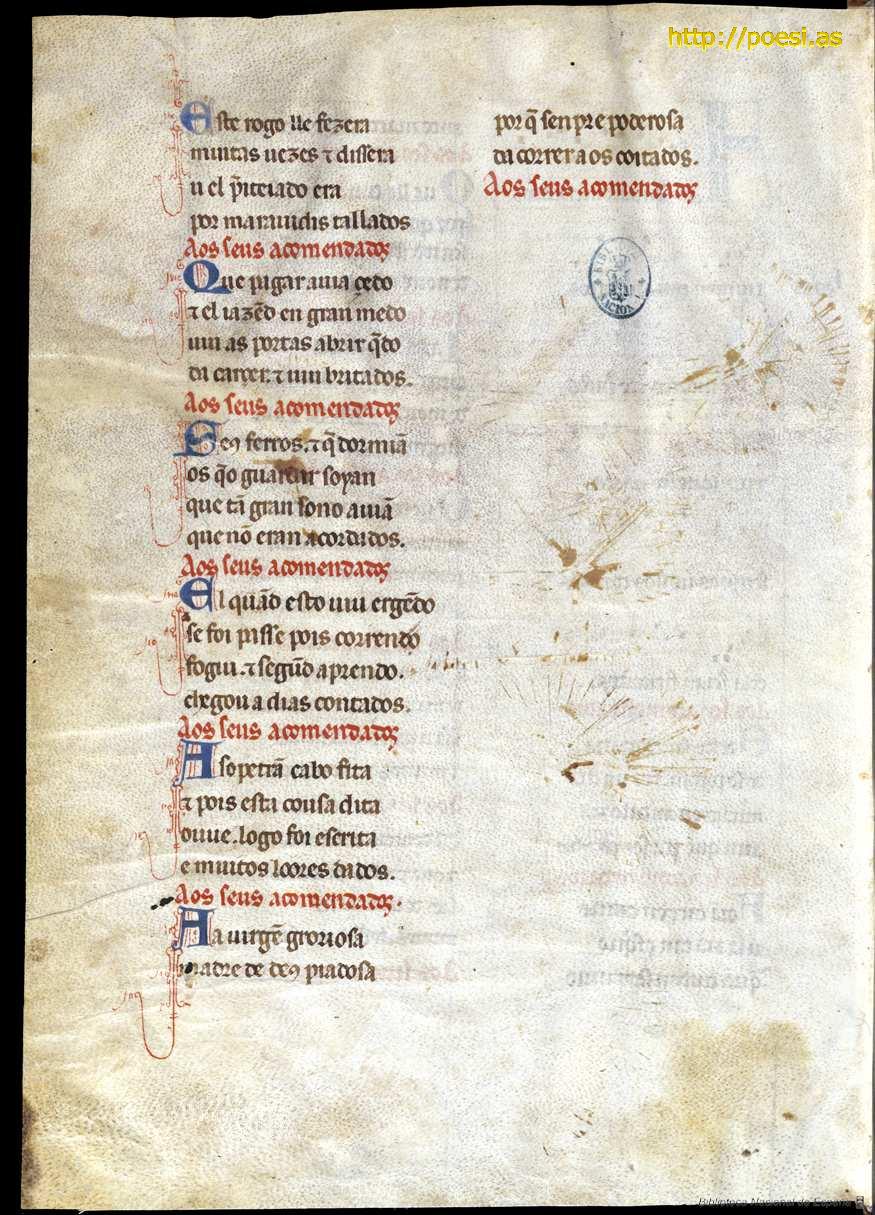 http://poesi.as
Este rogo lle fezera
muitas uezes ⁊ dissera
u el p̃iteiado era
por marauidis tallados
Aos seus acomendados
Que pagar auia cedo
⁊ el iazẽd en gran medo
uiu as portas abrir q̃do
da carcer. ⁊ uiu britados.
Aos seus acomendados
Seꝯ ferros. ⁊ q̃ dormiã
os q̃o guardar soyan
que tã gran sono auiã
que nõ eran acordados.
Aos seus acomendados
El quãd esto uiu ergẽdo
se foi passe pois correndo
fogiu. ⁊ segũd aprendo.
chegou a dias contados.
Aos seus acomendados
A sopetrã cabo fita
⁊ pois esta cousa dita
ouue. logo foi escrita
e muitos loores dados.
Aos seus acomendados.
Aa uirgẽ groriosa
madre de deꝯ piadosa
por q̃ senpre poderosa
da correr aos coitados.
Aos seus acomendados
BIBLIOTECA NACIONAL
Biblioteca Nacional de España